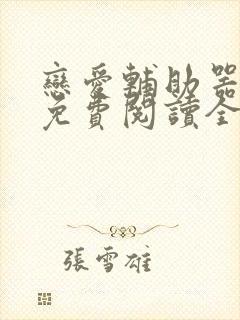 戀愛輔助器
免費閱讀全
張雪雄